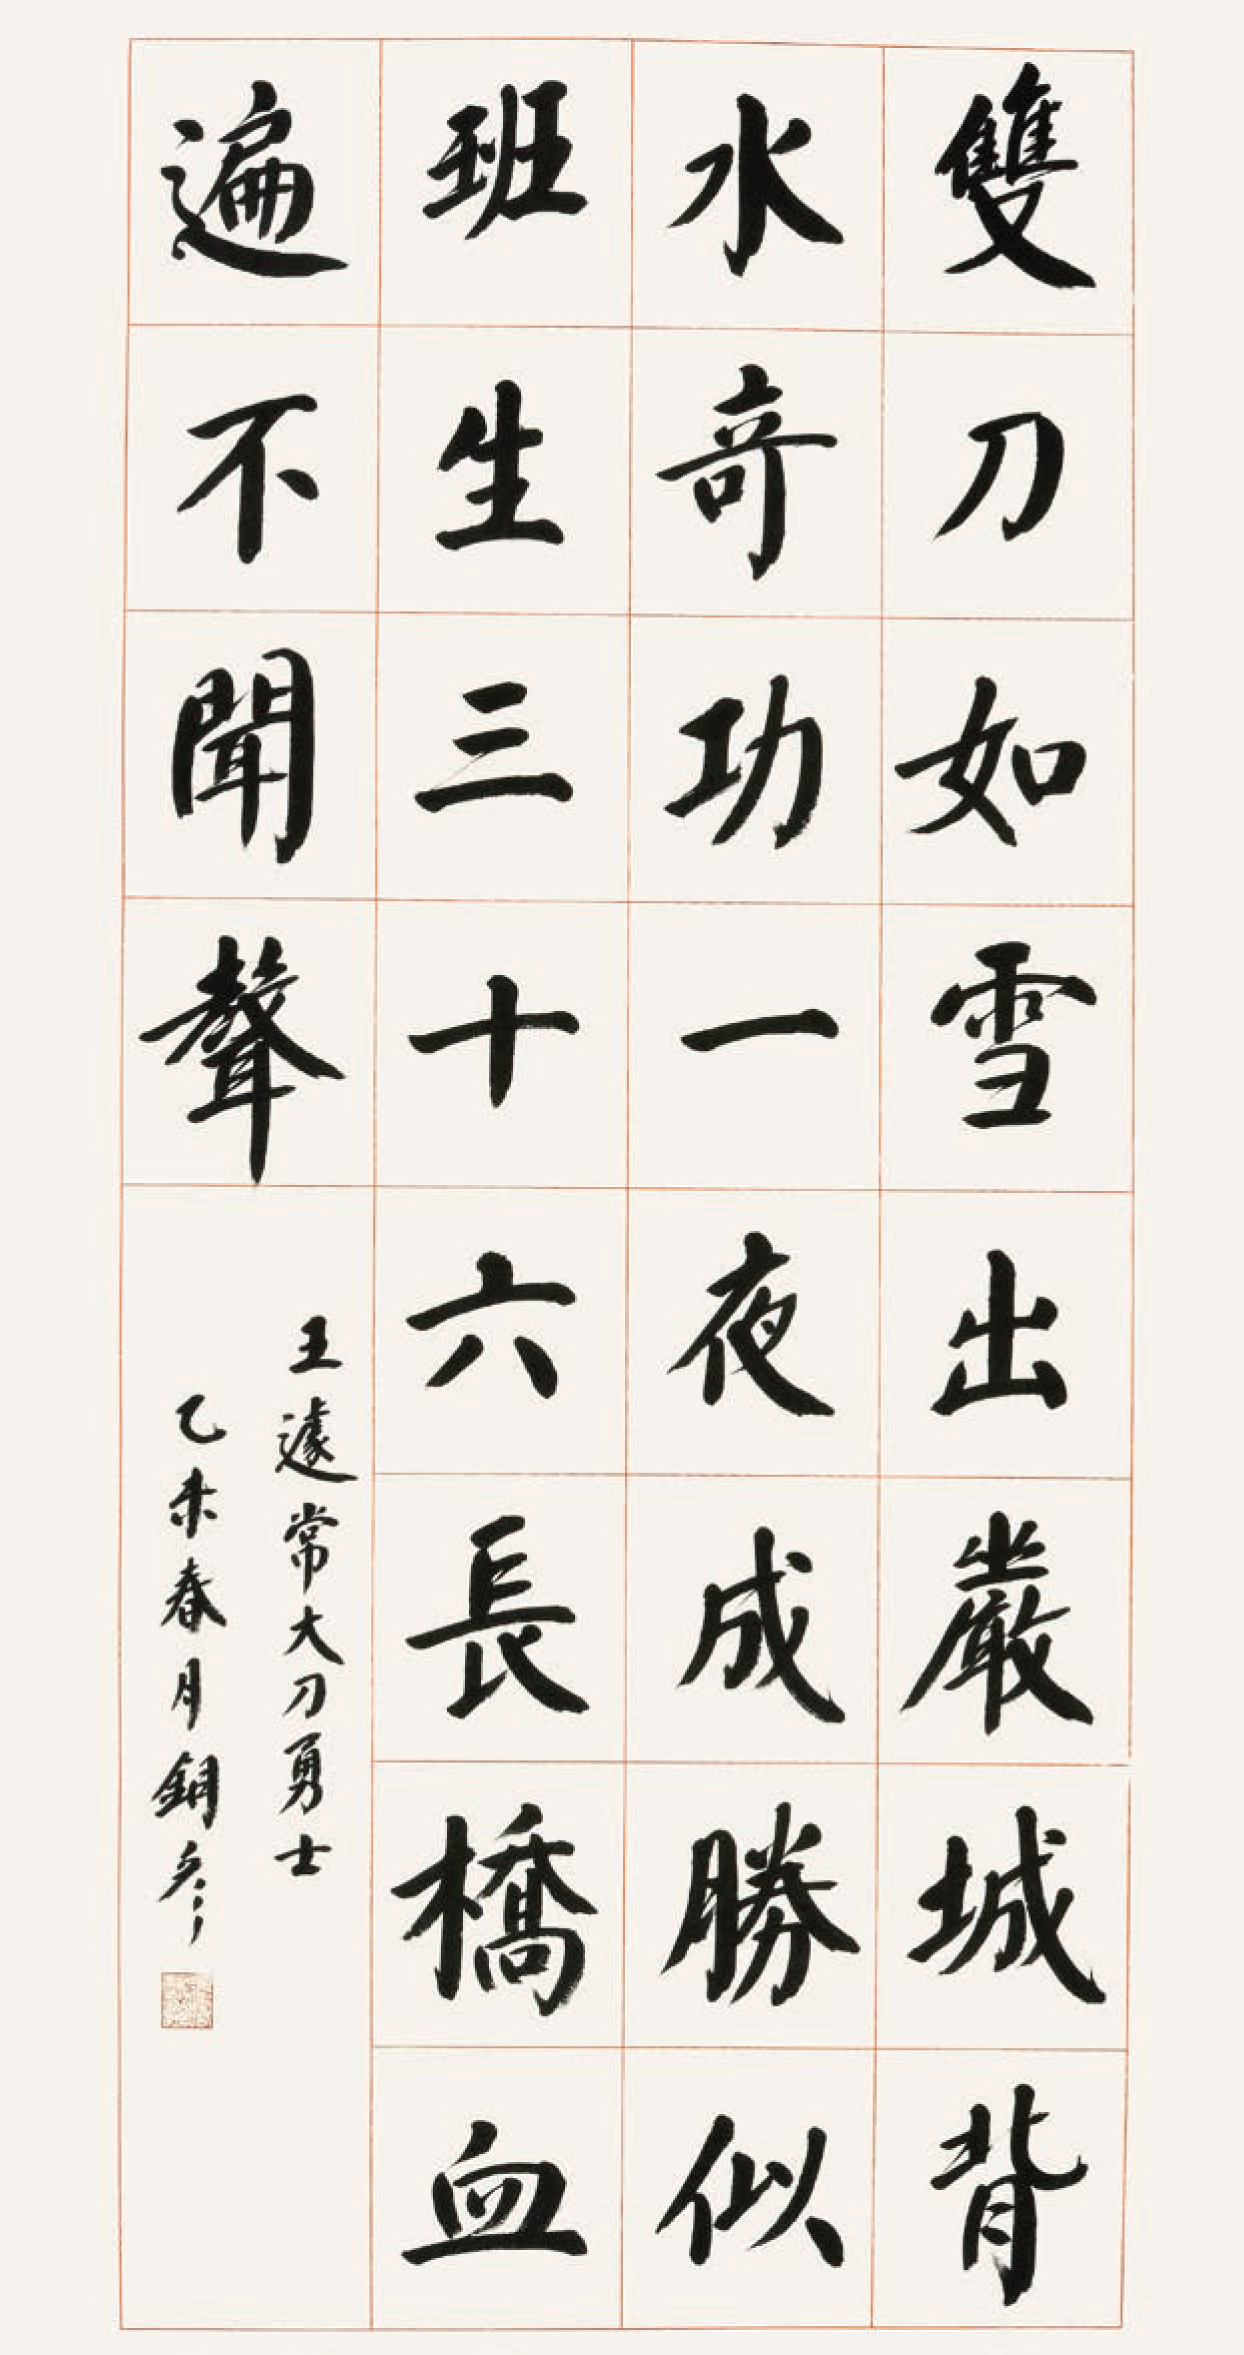 雙刀如雪出嚴城背
水奇功一夜成勝似
班生三十六長橋血
遍不聞聲
王遽常大刀勇士
乙未春月